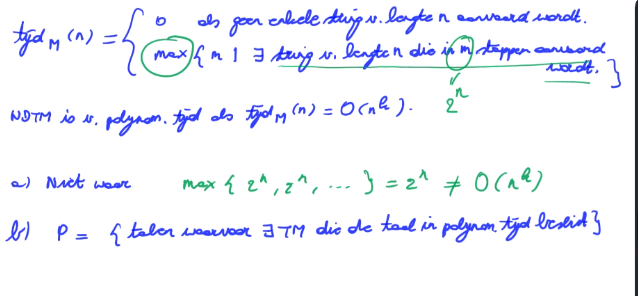 tijd_M(n) = { 0 als geen enkele string v. lengte n aanvaard wordt.
max { m | ∃ string v. lengte n die in m stappen aanvaard
wordt. }
2^n
NDTM is v. polynom. tijd als tijd_M(n) = O(n^k).
a) Niet waar max { 2^n, 2^n, ... } = 2^n ≠ O(n^k)
b) P = { talen waarvoor ∃ TM die de taal in polynom. tijd beslist }